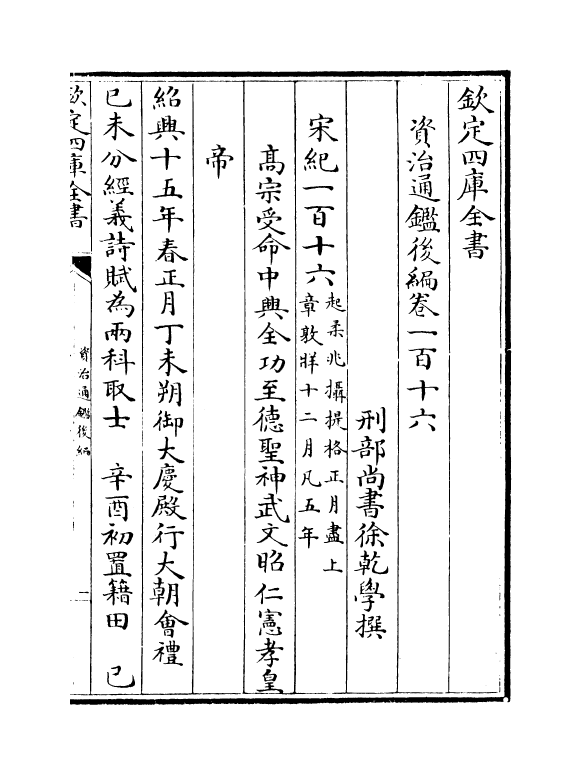 欽定四庫全書
資治通鑑後編卷一百十六
刑部尚書徐乾學撰
宋紀一百十六起柔兆攝提格正月盡上
章敦牂十二月凡五年
高宗受命中興全功至德聖神武文昭仁憲孝皇
帝
紹興十五年春正月丁未朔御大慶殿行大朝會禮
己未分經義詩賦為兩科取士 辛酉初置籍田 己
欽定四庫全書
資治通鑑後編